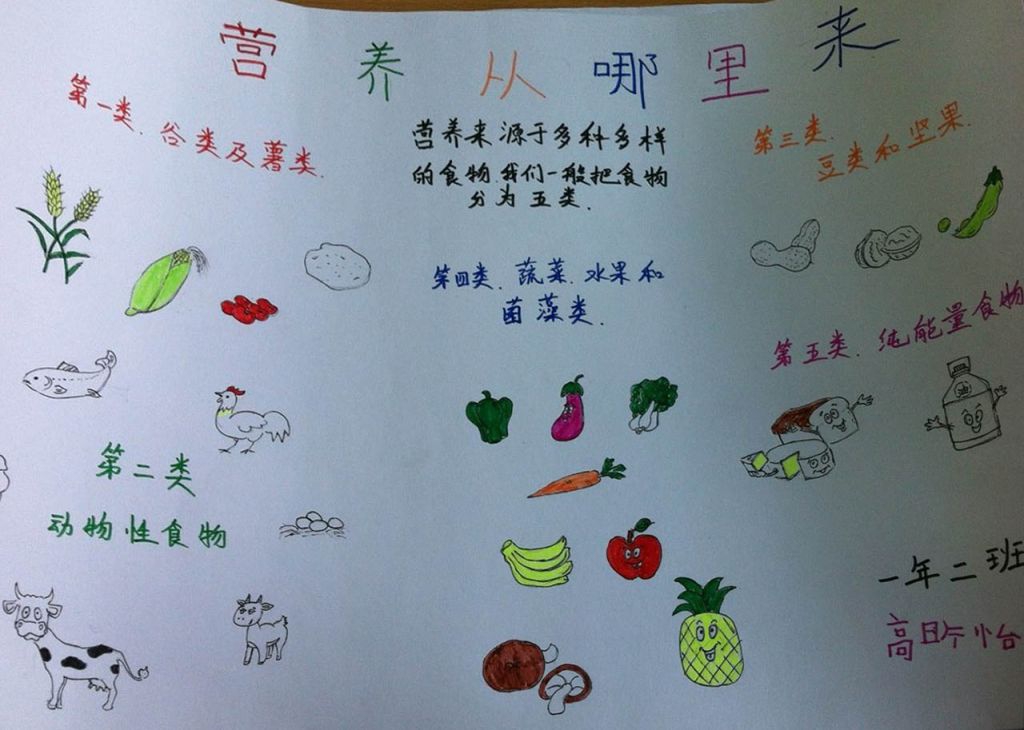 营养从哪里来
第一类.谷类及薯类.
营养来源于多种多样
的食物我们一般把食物
分为五类.
第三类.
豆类和坚果.
第四类.蔬菜.水果和
菌藻类.
第五类.纯能量食物
第二类
动物性食物
一年二班
高昕怡